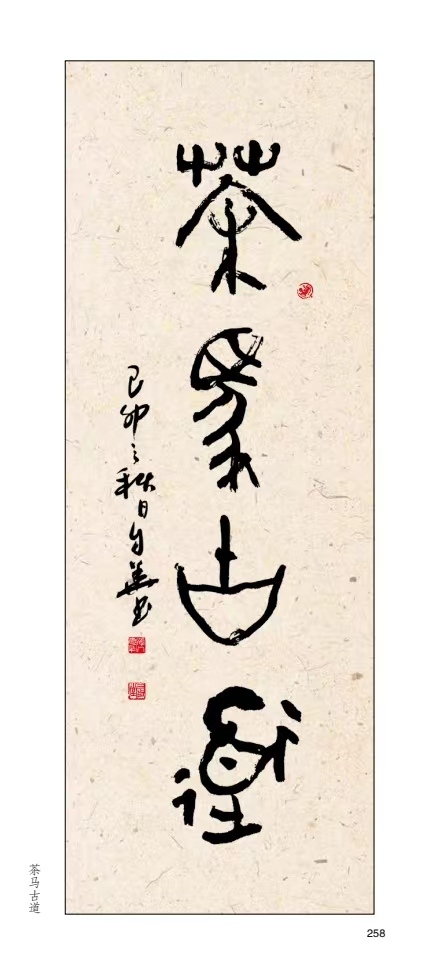 茶马古道
己卯之秋日自英书
茶马古道
258